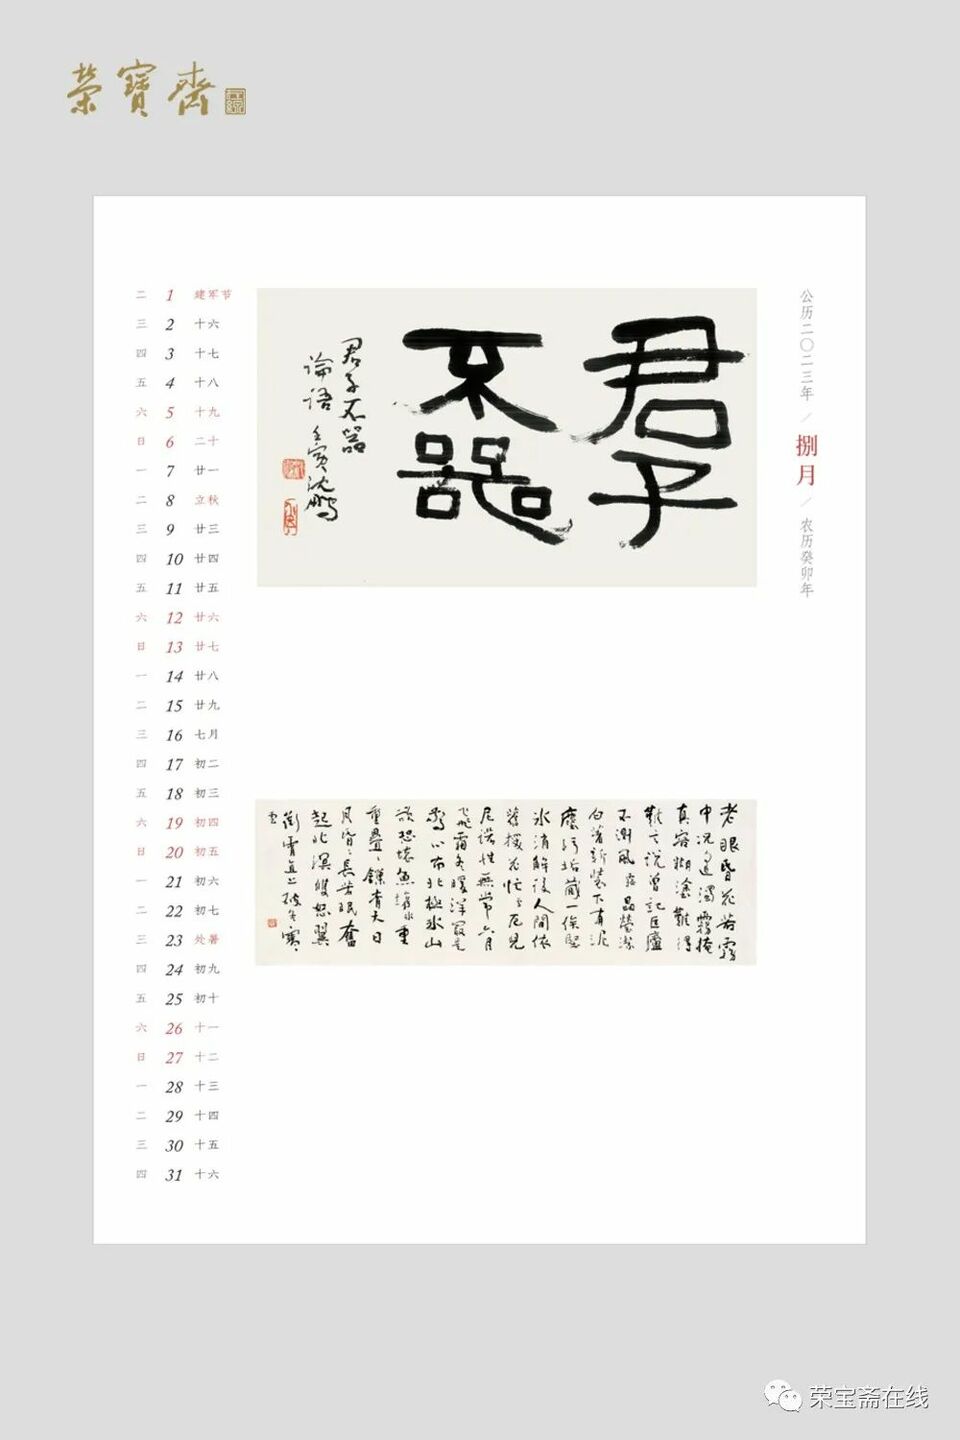 榮寶齋
公历二〇二三年／捌月／农历癸卯年
二 1 建军节
三 2 十六
四 3 十七
五 4 十八
六 5 十九
日 6 二十
一 7 廿一
二 8 立秋
三 9 廿三
四 10 廿四
五 11 廿五
六 12 廿六
日 13 廿七
一 14 廿八
二 15 廿九
三 16 七月
四 17 初二
五 18 初三
六 19 初四
日 20 初五
一 21 初六
二 22 初七
三 23 处暑
四 24 初九
五 25 初十
六 26 十一
日 27 十二
一 28 十三
二 29 十四
三 30 十五
四 31 十六
君子
不器
君子不器
论语 壬寅沈鹏
老眼昏花若霧
中况遠濁霧掩
真容糊塗難得
難之說曾記匡廬
不測風
白著新裝下有泥
塵污垢藏一俟堅
冰消解後人間依
舊撥花忙
尼諾性無常六月
飛霜冬暖洋
驚心南北極冰山
欲恐壞魚
重疊有大日
月昏長苦眠奮
起北溟雙怒翼
衝霄直上破冬寒
荣宝斋在线